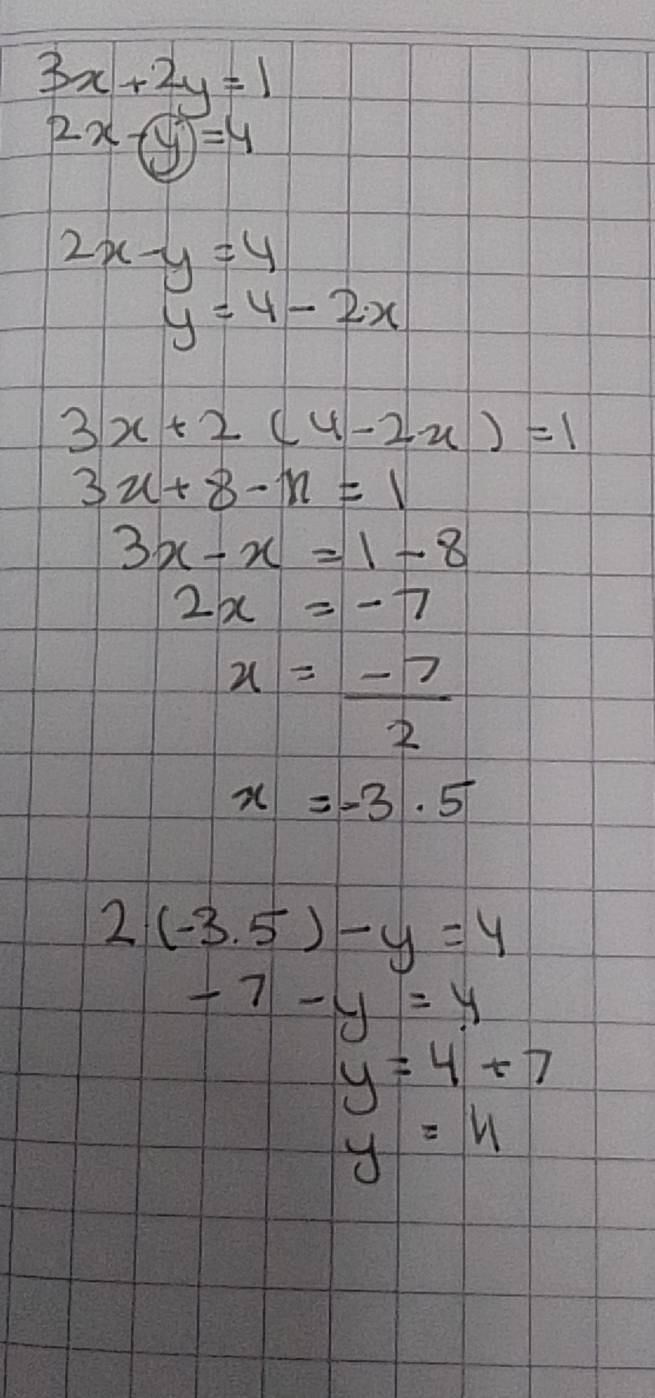 3x+2y=1
2x-y=4
2x-y=4
y=4-2x
3x+2(4-2x)=1
3x+8-x=1
3x-x=1-8
2x=-7
x=-7/2
x=-3.5
2(-3.5)-y=4
-7-y=4
y=4+7
y=11